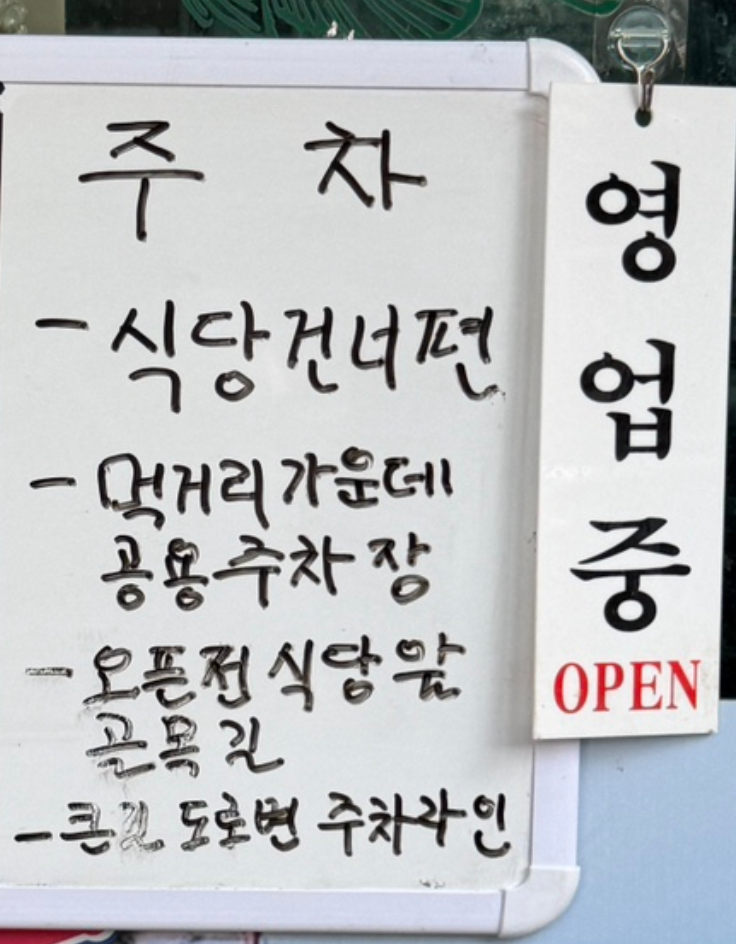 주 차
- 식당건너편
- 먹거리가운데
공용주차장
- 오픈전식당앞
골목길
- 큰길 도로변 주차라인
영업중
OPEN